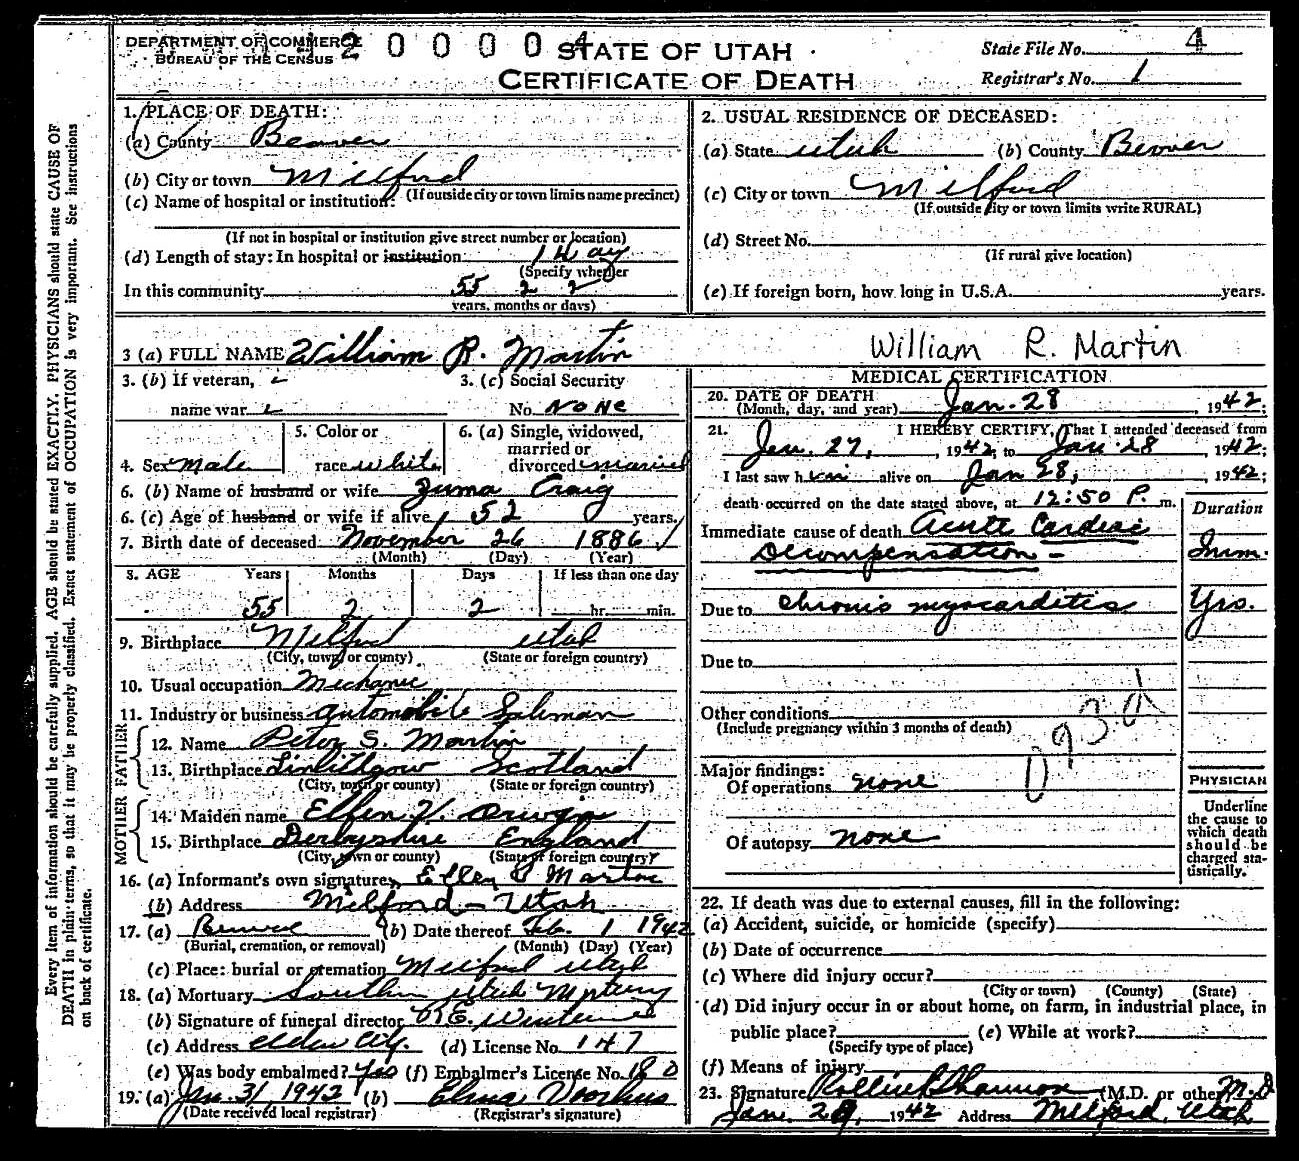 DEPARTMENT OF COMMERCE
BUREAU OF THE CENSUS
20000 4
STATE OF UTAH
CERTIFICATE OF DEATH
State File No. 4
Registrar's No. 1
1. PLACE OF DEATH:
(a) County Beaver
(b) City or town Milford
(If outside city or town limits name precinct)
(c) Name of hospital or institution:
(If not in hospital or institution give street number or location)
(d) Length of stay: In hospital or institution 1 Day
(Specify whether
In this community 55 2 2
years, months or days)
2. USUAL RESIDENCE OF DECEASED:
(a) State Utah (b) County Beaver
(c) City or town Milford
(If outside city or town limits write RURAL)
(d) Street No.
(If rural give location)
(e) If foreign born, how long in U.S.A. years.
3 (a) FULL NAME William R. Martin
William R. Martin
3. (b) If veteran,
name war
3. (c) Social Security
No. None
4. Sex male
5. Color or
race white
6. (a) Single, widowed,
married or
divorced married
6. (b) Name of husband or wife Zuma Craig
6. (c) Age of husband or wife if alive 52 years.
7. Birth date of deceased November 26 1886
(Month) (Day) (Year)
8. AGE Years Months Days If less than one day
55 2 2 hr. min.
9. Birthplace Milford Utah
(City, town, or county) (State or foreign country)
10. Usual occupation Mechanic
11. Industry or business automobile Saleman
FATHER
12. Name Peter S. Martin
13. Birthplace Linlithgow Scotland
(City, town or county) (State or foreign country)
MOTHER
14. Maiden name Ellen V.
15. Birthplace Derbyshire England
(City, town or county) (State of foreign country)
16. (a) Informant's own signature Ellen Martin
(b) Address Milford - Utah
17. (a) (b) Date thereof Feb. 1 1942
(Burial, cremation, or removal) (Month) (Day) (Year)
(c) Place: burial or cremation Milford Utah
18. (a) Mortuary Southern Utah Mortuary
(b) Signature of funeral director
(c) Address Cedar City. (d) License No. 147
(e) Was body embalmed? Yes (f) Embalmer's License No. 180
19. (a) Jan. 31, 1942 (b) Elma Voorhees
(Date received local registrar) (Registrar's signature)
MEDICAL CERTIFICATION
20. DATE OF DEATH
(Month, day, and year) Jan. 28, 1942;
21. I HEREBY CERTIFY, That I attended deceased from
Jan. 27, 1942; to Jan. 28, 1942;
I last saw him alive on Jan 28, 1942;
death occurred on the date stated above, at 12:50 P. m.
Duration
Immediate cause of death Acute Cardiac
Decompensation - Imm.
Due to chronic myocarditis Yrs.
Due to
Other conditions
(Include pregnancy within 3 months of death)
093.d
Major findings:
Of operations none
Of autopsy none
PHYSICIAN
Underline
the cause to
which death
should be
charged sta-
tistically.
22. If death was due to external causes, fill in the following:
(a) Accident, suicide, or homicide (specify)
(b) Date of occurrence
(c) Where did injury occur?
(City or town) (County) (State)
(d) Did injury occur in or about home, on farm, in industrial place, in
public place? (e) While at work?
(Specify type of place)
(f) Means of injury
23. Signature Rollie Shannon (M.D. or other) M.D
Jan. 29, 1942 Address Milford, Utah
Every item of information should be carefully supplied. AGE should be stated EXACTLY. PHYSICIANS should state CAUSE OF
DEATH in plain terms, so that it may be properly classified. Exact statement of OCCUPATION is very important. See instructions
on back of certificate.